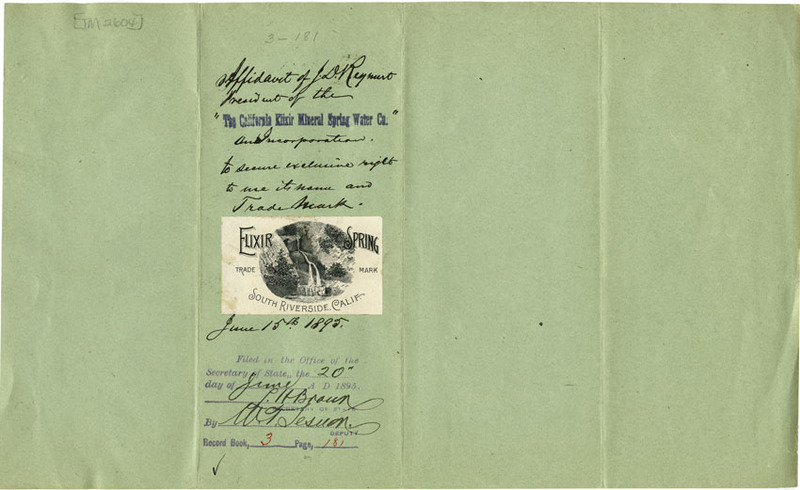 [TM 2604]
3-181
Affidavit of J. D. Reymert
President of the
"The California Elixir Mineral Spring Water Co."
an Incorporation.
to secure exclusive right
to use its name and
Trade Mark.
ELIXIR SPRING
TRADE MARK
SOUTH RIVERSIDE, CALIF-
June 15th 1895.
Filed in the Office of the
Secretary of State, the 20"
day of June A D 1895.
L. H. Brown
SECRETARY OF STATE
By
DEPUTY
Record Book, 3 Page, 181